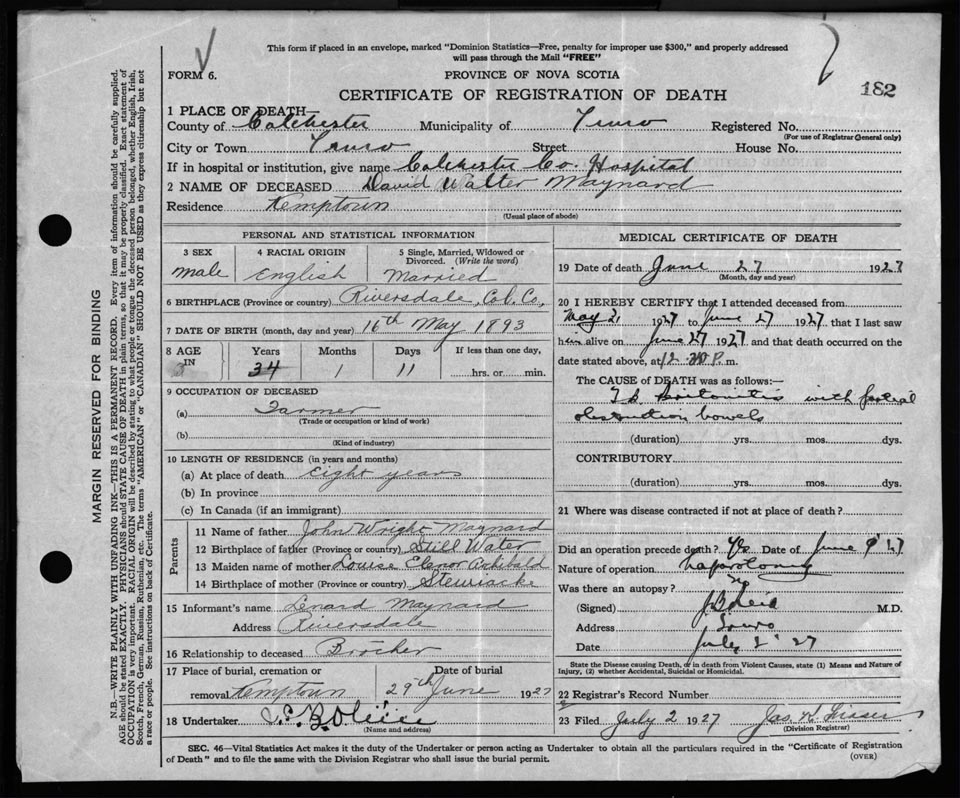 This form if placed in an envelope, marked "Dominion Statistics—Free, penalty for improper use $300," and properly addressed
will pass through the Mail "FREE"
FORM 6.
PROVINCE OF NOVA SCOTIA
182
CERTIFICATE OF REGISTRATION OF DEATH
1 PLACE OF DEATH—
County of Colchester Municipality of Truro Registered No.
(For use of Registrar Generall only)
City or Town Truro Street House No.
If in hospital or institution, give name Colchester Co. Hospital
2 NAME OF DECEASED David Walter Maynard
Residence Kemptown
(Usual place of abode)
PERSONAL AND STATISTICAL INFORMATION
3 SEX 4 RACIAL ORIGIN 5 Single, Married, Widowed or
Divorced. (Write the word)
male English Married
6 BIRTHPLACE (Province or country) Riversdale, Col. Co,
7 DATE OF BIRTH (month, day and year) 16th May 1893
8 AGE Years Months Days If less than one day,
IN 34 1 11 hrs. or min.
9 OCCUPATION OF DECEASED
(a) Farmer
(Trade or occupation or kind of work)
(b)
(Kind of industry)
10 LENGTH OF RESIDENCE (in years and months)
(a) At place of death eight years
(b) In province
(c) In Canada (if an immigrant)
Parents
11 Name of father John Wright Maynard
12 Birthplace of father (Province or country) Still Water
13 Maiden name of mother Louise Elenor Archibald
14 Birthplace of mother (Province or country) Stewiacke
15 Informant's name Lenard Maynard
Address Riversdale
16 Relationship to deceased Brother
17 Place of burial, cremation or Date of burial
removal Kemptown 29th June 1927
18 Undertaker
(Name and address)
MEDICAL CERTIFICATE OF DEATH
19 Date of death June 27 1927
(Month, day and year)
20 I HEREBY CERTIFY that I attended deceased from
May 21 1927 to June 27 1927 that I last saw
him alive on June 27 1927 and that death occurred on the
date stated above, at 12 30 P. m.
The CAUSE of DEATH was as follows:—
T B Peritonitis with partial
obstruction bowels
(duration) yrs. mos. dys.
CONTRIBUTORY
(duration) yrs. mos. dys.
21 Where was disease contracted if not at place of death?
Did an operation precede death? Yes Date of June 9 27
Nature of operation Laparotomy
Was there an autopsy? no
(Signed) M.D.
Address Truro
Date July 2 '27
State the Disease causing Death, or in death from Violent Causes, state (1) Means and Nature of
Injury, (2) whether Accidental, Suicidal or Homicidal.
22 Registrar's Record Number
23 Filed July 2 1927 Jas. K.
(Division Registrar)
SEC. 46—Vital Statistics Act makes it the duty of the Undertaker or person acting as Undertaker to obtain all the particulars required in the "Certificate of Registration
of Death" and to file the same with the Division Registrar who shall issue the burial permit.
(OVER)
MARGIN RESERVED FOR BINDING
N.B.—WRITE PLAINLY WITH UNFADING INK—THIS IS A PERMANENT RECORD. Every item of information should be carefully supplied.
AGE should be stated EXACTLY. PHYSICIANS should STATE CAUSE OF DEATH in plain terms, so that it may be properly classified. Exact statement of
OCCUPATION is very important. RACIAL ORIGIN will be described by stating to what people or tongue the deceased person belonged, whether English, Irish,
Scotch, French, German, Russian, Ruthenian, etc. The terms "AMERICAN" or "CANADIAN" SHOULD NOT BE USED as they express citizenship but not
a race or people. See instructions on back of Certificate.